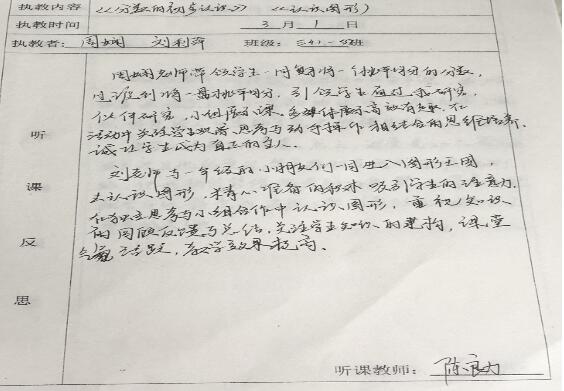 执教内容 《分数的初步认识》 《认识图形》
执教时间 3 月 1 日
执教者: 周娴 刘利萍 班级: 三(1) 一(2)班
听课反思
周娴老师带领学生一同复习将一个桃平均分的分数,
迁移到将一盘桃平均分, 引领学生通过 研究,
伙伴研究, 小组 课, 多媒体展示高效有 , 在
活动中关注学生观察、思考与动手操作相结合的思维培养,
让学生成为真正的主人。
刘老师与一年级的小朋友们一同进入图形王国,
去认识图形, 精心准备的积木吸引学生的注意力,
在独立思考与小组合作中认识图形, 重视知识
的回顾反馈与总结, 关注学生知识的建构, 课堂
气氛活跃, 教学效果极高。
听课教师: 陈